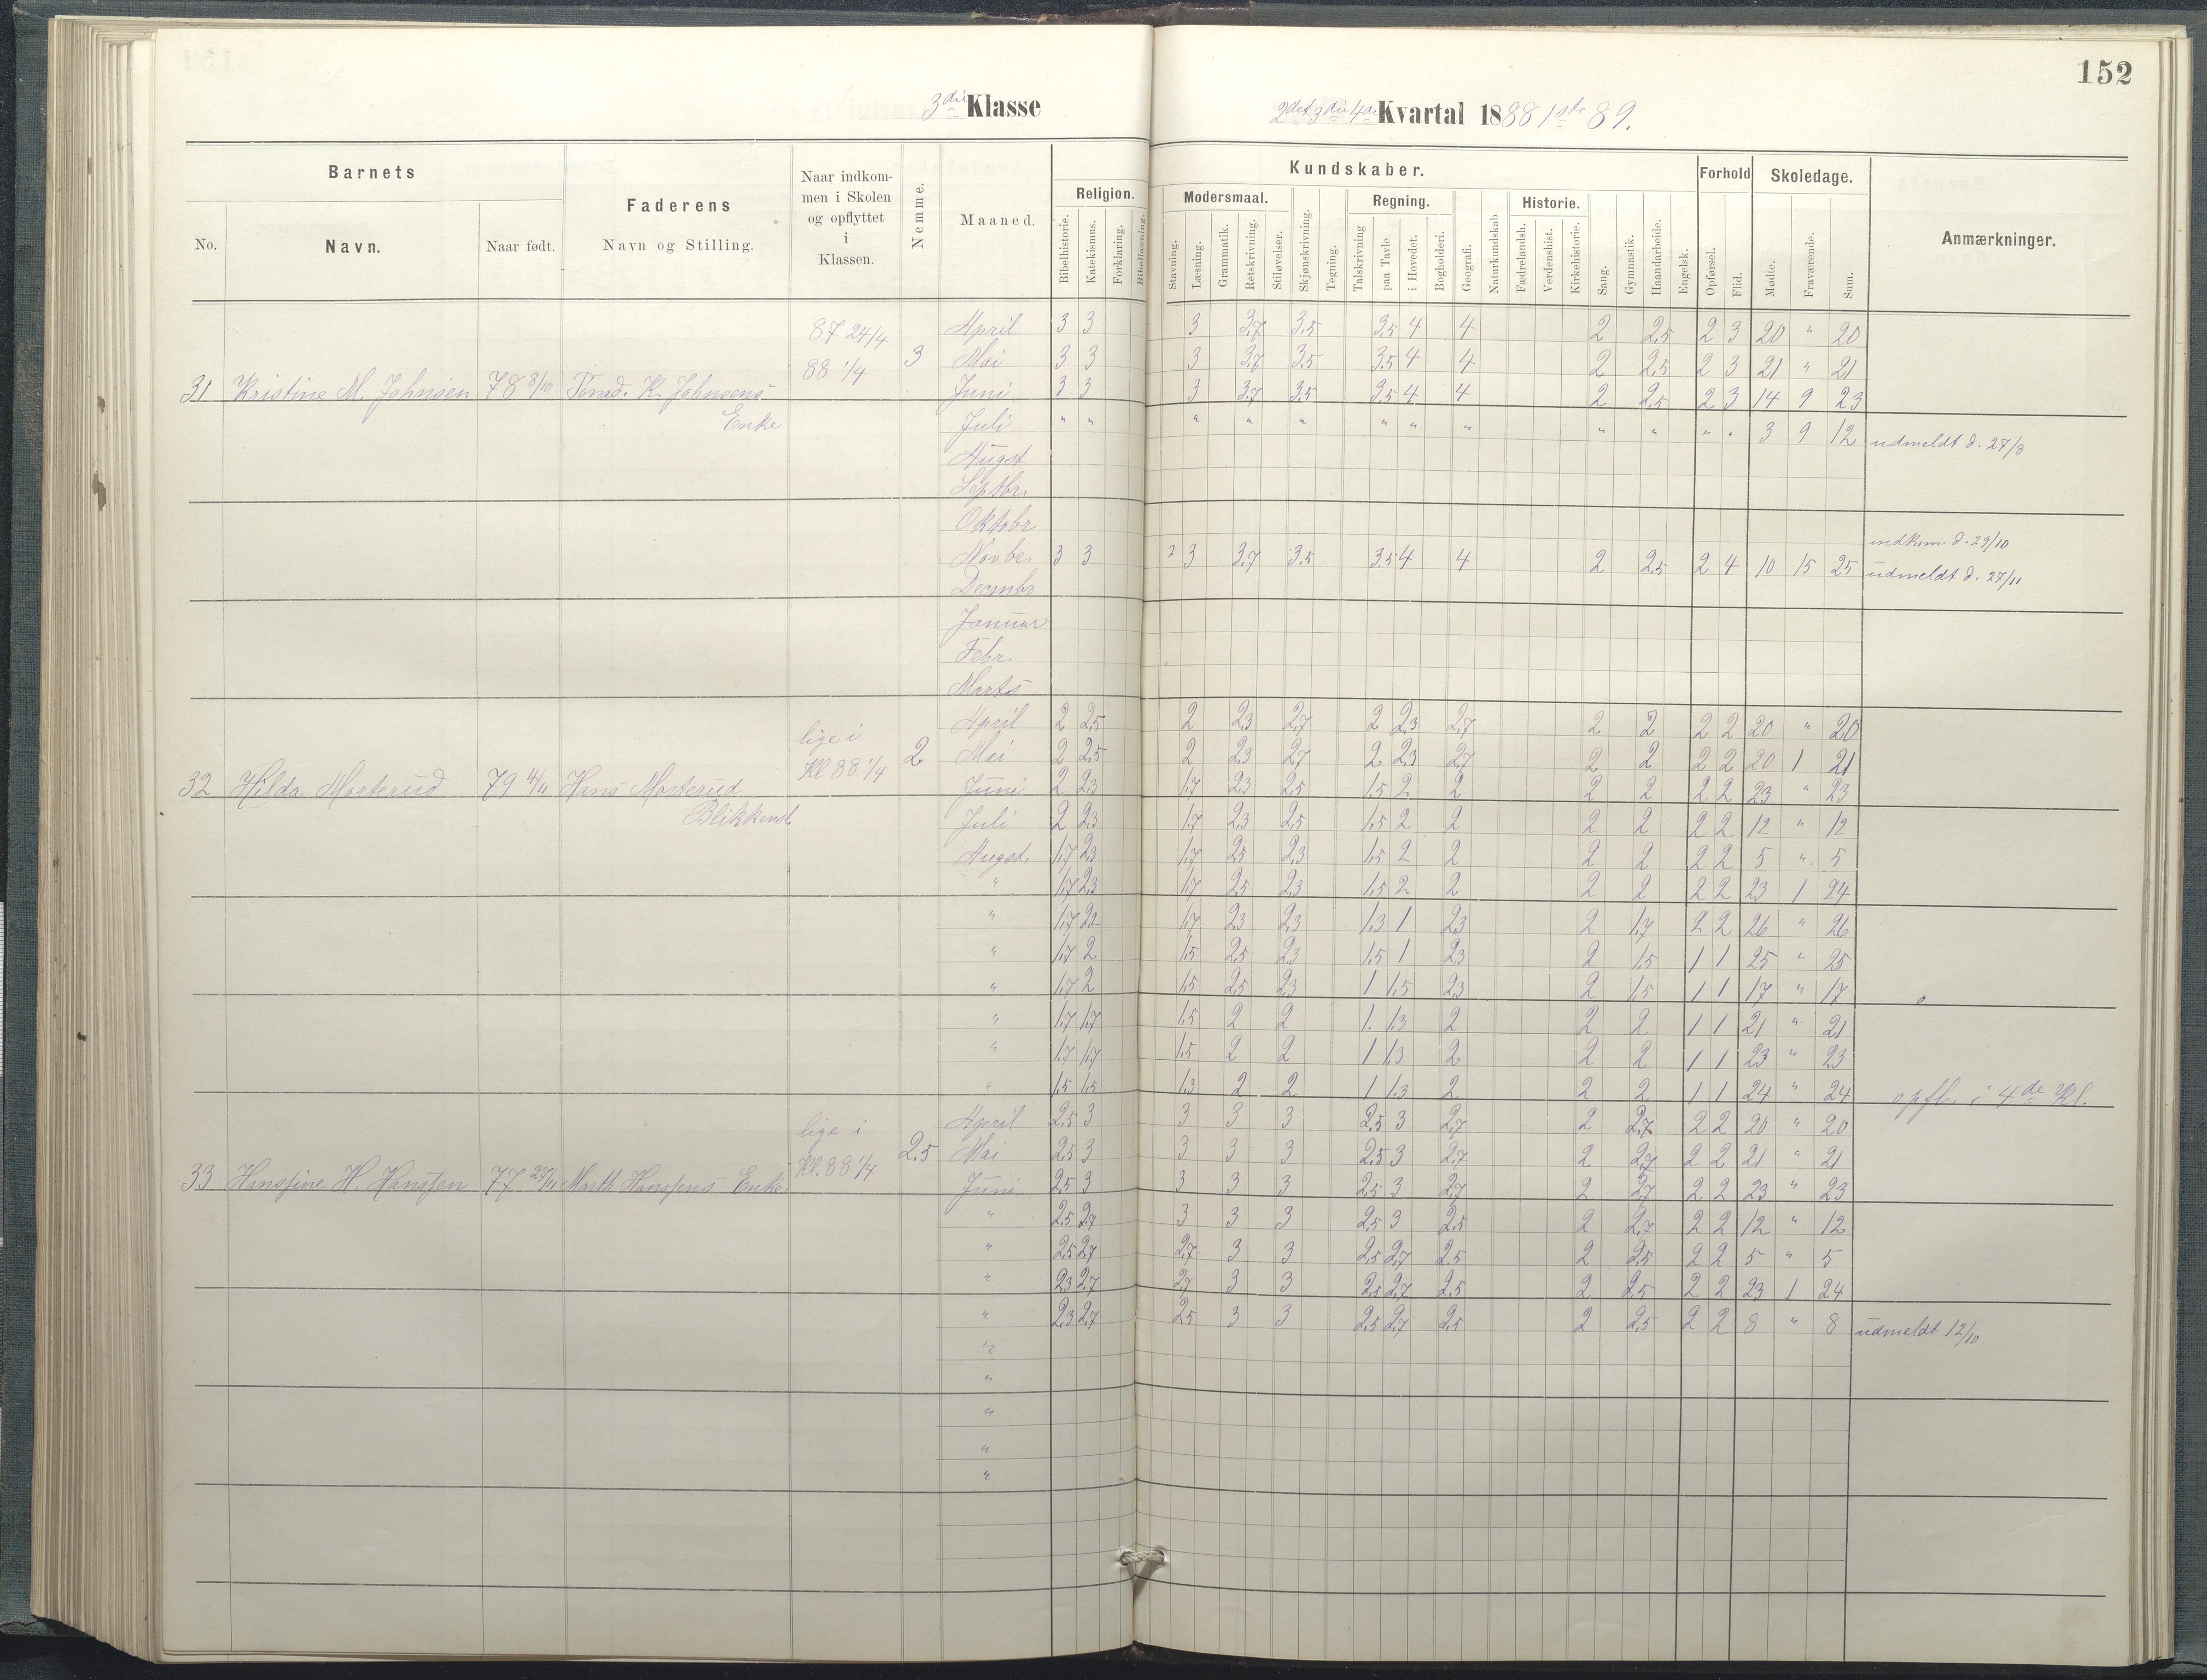 152
3die Klasse
2det 3die 4de Kvartal 1888 1ste 89.
Barnets
Faderens
Naar indkom-
men i Skolen
og opflyttet
i
Klassen.
Nemme.
Maaned.
Kundskaber.
Forhold
Skoledage.
Anmærkninger.
Religion.
Modersmaal.
Regning.
Historie.
No.
Navn.
Naar født.
Navn og Stilling.
Bibelhistorie.
Katekismus.
Forklaring.
Bibellæsning.
Stavning.
Læsning.
Grammatik.
Retskrivning.
Stiløvelser.
Skjønskrivning.
Tegning.
Talskrivning
paa Tavle.
i Hovedet.
Bogholderi.
Geografi.
Naturkundskab
Fædrelandsh.
Verdenshist.
Kirkehistorie.
Sang.
Gymnastik.
Haandarbeide.
Engelsk.
Opførsel.
Flid.
Mødte.
Fraværende.
Sum.
87 24/4
88 1/4
3
31 Kristine M. Johnsen 78 8/10 K. Johnsens
Enke
April 3 3 3 3,7 3,5 3,5 4 4 2 2,5 2 3 20 " 20
Mai 3 3 3 3,7 3,5 3,5 4 4 2 2,5 2 3 21 " 21
Juni 3 3 3 3,7 3,5 3,5 4 4 2 2,5 2 3 14 9 23
Juli " " " " " " " " " " " " 3 9 12 udmeldt d. 27/8
Augst
Septbr.
Oktobr
indkom d. 29/10
Novbr. 3 3 2 3 3,7 3,5 3,5 4 4 2 2,5 2 4 10 15 25 udmeldt d. 27/11
Decmbr
Januar
Febr.
Marts
lige i
Kl 88 1/4
2
32 Hilda Mosterud 79 4/11 Hans Mosterud
Blikkensl.
April 2 2,5 2 2,3 2,7 2 2,3 2,7 2 2 2 2 20 " 20
Mai 2 2,5 2 2,3 2,7 2 2,3 2,7 2 2 2 2 20 1 21
Juni 2 2,3 1,7 2,3 2,5 1,5 2 2 2 2 2 2 23 " 23
Juli 2 2,3 1,7 2,3 2,5 1,5 2 2 2 2 2 2 12 " 12
Augst. 1,7 2,3 1,7 2,5 2,3 1,5 2 2 2 2 2 2 5 " 5
" 1,7 2,3 1,7 2,5 2,3 1,5 2 2 2 2 2 2 23 1 24
" 1,7 2,2 1,7 2,3 2,3 1,3 1 2,3 2 1,7 2 2 26 " 26
" 1,7 2 1,5 2,5 2,3 1,5 1 2,3 2 1,5 1 1 25 " 25
" 1,7 2 1,5 2,5 2,3 1 1,5 2,3 2 1,5 1 1 17 " 17
" 1,7 1,7 1,5 2 2 1. 1,3 2 2 2 1 1 21 " 21
" 1,7 1,7 1,5 2 2 1 1,3 2 2 2 1 1 23 " 23
" 1,5 1,5 1,3 2 2 1 1,3 2 2 2 1 1 24 " 24 opfl. i 4de Kl.
lige i
Kl. 88 1/4
2.5
33 Hansine H. Hansen 77 27/11 Hansens Enke.
April 2,5 3 3 3 3 2,5 3 2,7 2 2,7 2 2 20 " 20
Mai 2,5 3 3 3 3 2,5 3 2,7 2 2,7 2 2 21 " 21
Juni 2,5 3 3 3 3 2,5 3 2,7 2 2,7 2 2 23 " 23
" 2,5 2,7 3 3 3 2,5 3 2,5 2 2,7 2 2 12 " 12
" 2,5 2,7 2,7 3 3 2,5 2,7 2,5 2 2,5 2 2 5 " 5
" 2,3 2,7 2,7 3 3 2,5 2,7 2,5 2 2,5 2 2 23 1 24
" 2,3 2,7 2,5 3 3 2,5 2,7 2,5 2 2,5 2 2 8 " 8 udmeldt 12/10
"
"
"
"
"